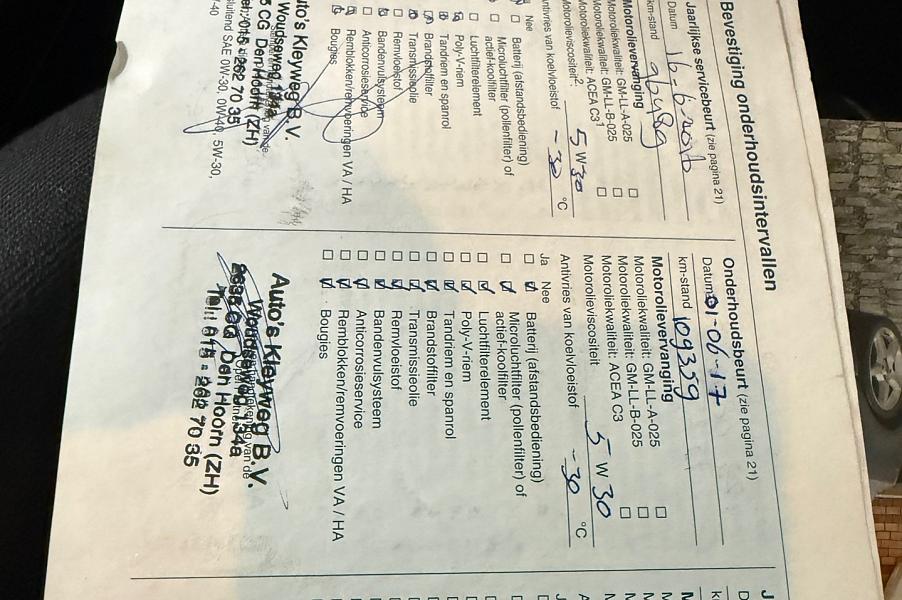 Bevestiging onderhoudsintervallen
Jaarlijkse servicebeurt (zie pagina 21)
Datum
km-stand
Motorolievervanging
Motoroliekwaliteit: GM-LL-A-025
Motoroliekwaliteit: GM-LL-B-025
Motoroliekwaliteit: ACEA C3
Motorolieviscositeit 5 W-30
Antivries van koelvloeistof -30 °C
Nee
Batterij (afstandsbediening)
Microluchtfilter (pollenfilter) of
actief-koolfilter
Luchtfilterelement
Poly-V-riem
Tandriem en spanrol
Brandstoffilter
Transmissieolie
Remvloeistof
Bandenvulsysteem
Anticorrosieservice
Remblokken/remvoeringen VA / HA
Bougies
Auto's Kleyweg B.V.
Woudseweg 134a
CG Den Hoorn (ZH)
015 - 262 70 35
SAE 0W-30, 0W-40, 5W-30,
Onderhoudsbeurt (zie pagina 21)
Datum 01-06-17
km-stand 109359
Motorolievervanging
Motoroliekwaliteit: GM-LL-A-025
Motoroliekwaliteit: GM-LL-B-025
Motoroliekwaliteit: ACEA C3
Motorolieviscositeit 5 W 30
Antivries van koelvloeistof -30 °C
Ja Nee
Batterij (afstandsbediening)
Microluchtfilter (pollenfilter) of
actief-koolfilter
Luchtfilterelement
Poly-V-riem
Tandriem en spanrol
Brandstoffilter
Transmissieolie
Remvloeistof
Bandenvulsysteem
Anticorrosieservice
Remblokken/remvoeringen VA / HA
Bougies
Auto's Kleyweg B.V.
Woudseweg 134a
2635 CG Den Hoorn (ZH)
Tel.: 015 - 262 70 35